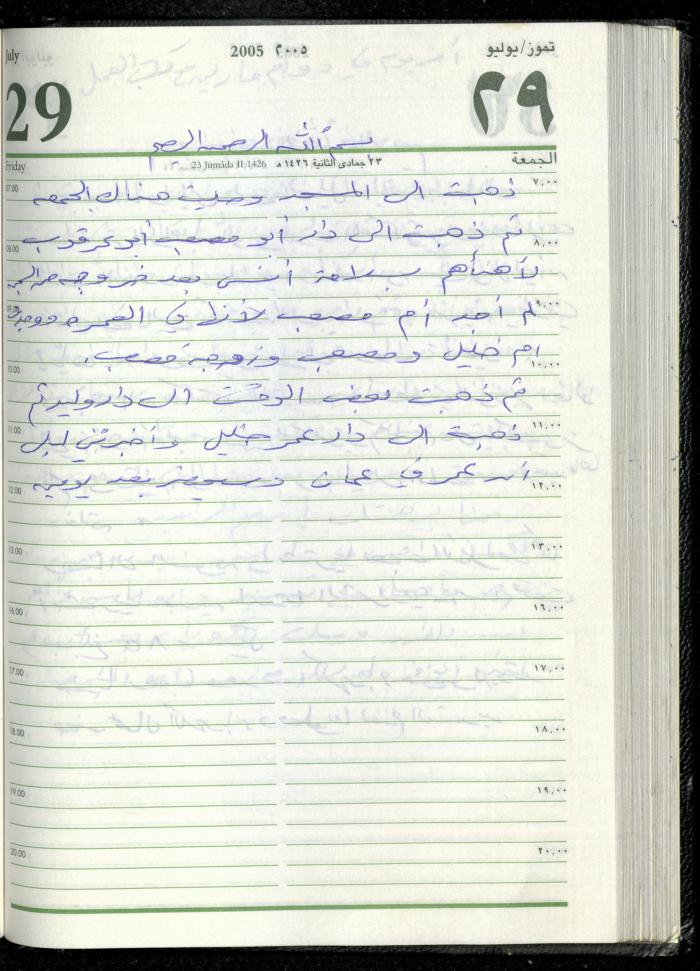 July
2005 ٢٠٠٥
تموز/يوليو
29
٢٩
بسم الله الرحمن الرحيم
Friday
23 Jumâda II 1426
٢٣ جمادى الثانية ١٤٢٦ هـ
الجمعة
07.00 ذهبت الى المسجد وصليت هناك الجمعه ٧,٠٠
08.00 ثم ذهبت الى دار أبو مصعب أبو عرقوب ٨,٠٠
لأهنأهم بسلامة أنس بعد خروجه من
09.00 لم أجد أم مصعب لأنها في العمره ووجدت ٩,٠٠
ام خليل ومصعب وزوجة مصعب.
10.00 ١٠,٠٠
ثم ذهبت بعض الوقت الى دار وليد ثم
11.00 ذهبت الى دار عمر خليل وأخبرتني ليلى ١١,٠٠
أن عمر في عمان وسيحضر بعد يومين
12.00 ١٢,٠٠
13.00 ١٣,٠٠
16.00 ١٦,٠٠
17.00 ١٧,٠٠
18.00 ١٨,٠٠
19.00 ١٩,٠٠
20.00 ٢٠,٠٠